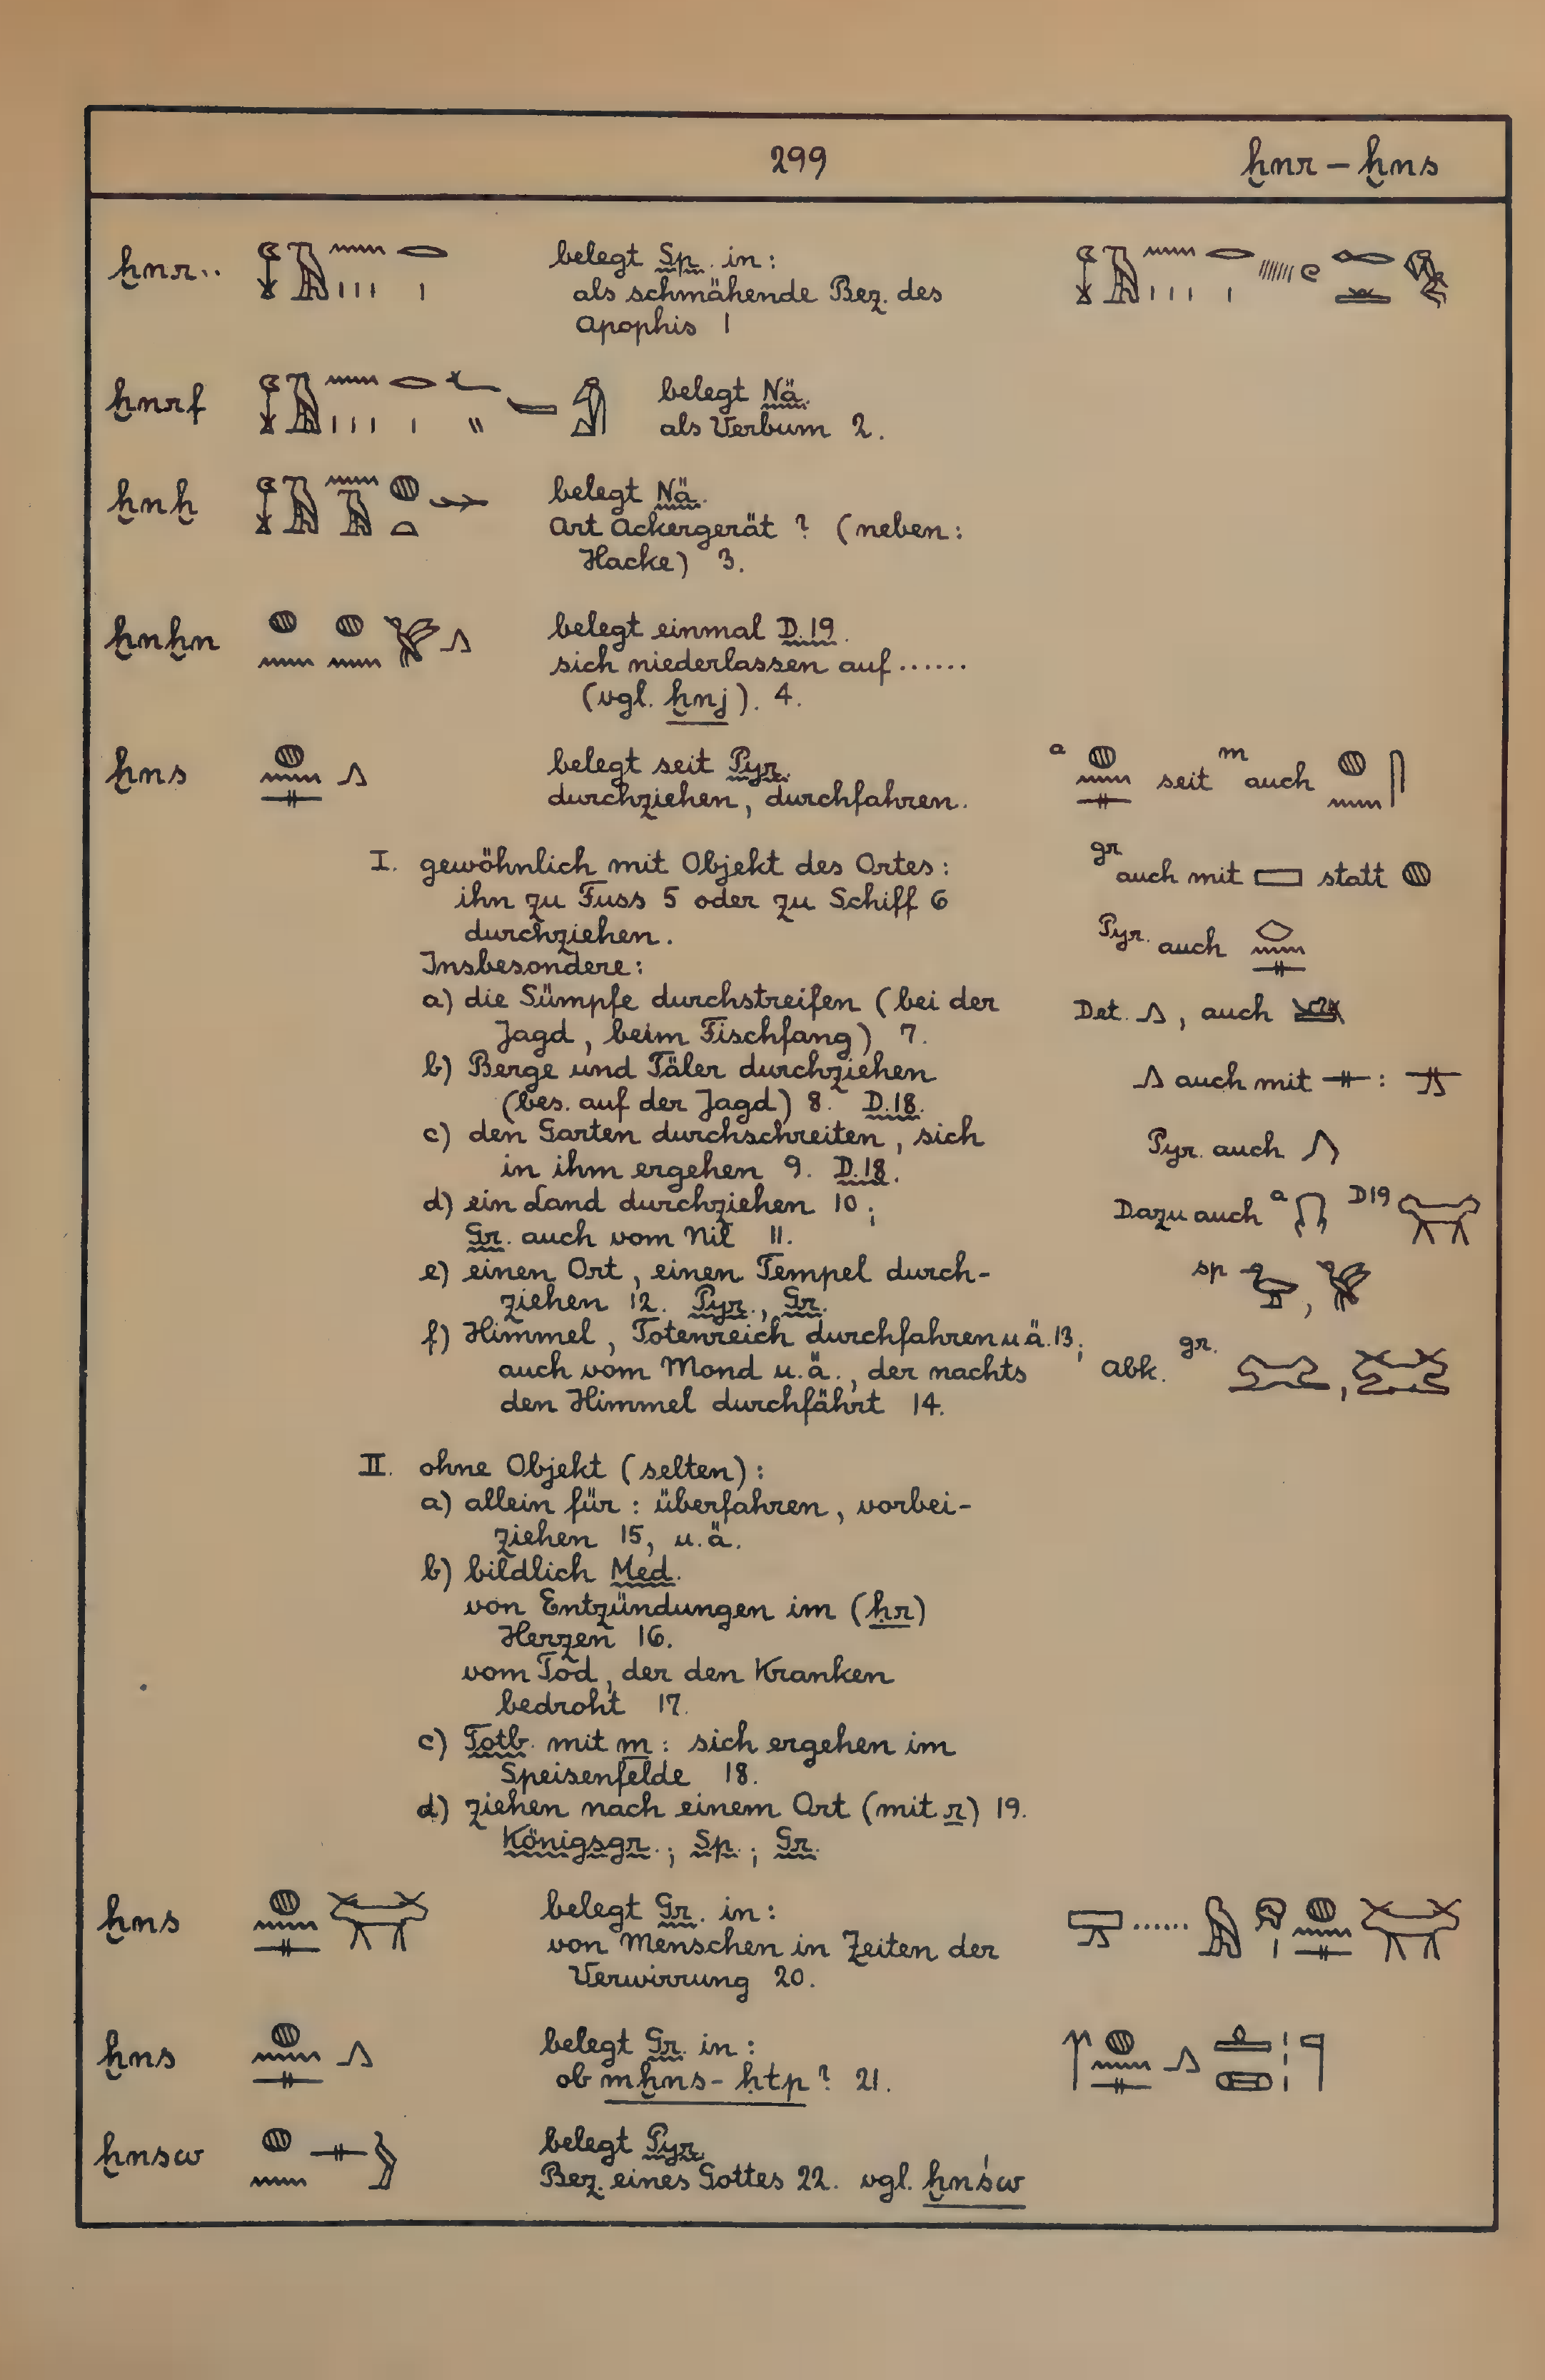 299
ḫnr – ḫns
ḫnr..
belegt Sp. in:
als schmähende Bez. des
Apophis 1
ḫnrf
belegt Nä.
als Verbum 2.
ḫnḫ
belegt Nä.
Art Ackergerät ? (neben:
Hacke) 3.
ḫnḫn
belegt einmal D.19.
sich niederlassen auf ......
(vgl. ḫnj). 4.
ḫns 𓐍𓈖𓊃𓂻
belegt seit Pyr.
durchziehen, durchfahren.
I. gewöhnlich mit Objekt des Ortes:
ihn zu Fuss 5 oder zu Schiff 6
durchziehen.
Insbesondere:
a) die Sümpfe durchstreifen (bei der
Jagd, beim Fischfang) 7.
b) Berge und Täler durchziehen
(bes. auf der Jagd) 8. D.18.
c) den Garten durchschreiten, sich
in ihm ergehen 9. D.18.
d) ein Land durchziehen 10;
Gr. auch vom Nil 11.
e) einen Ort, einen Tempel durch-
ziehen 12. Pyr., Gr.
f) Himmel, Totenreich durchfahren u.ä. 13;
auch vom Mond u.ä., der nachts
den Himmel durchfährt 14.
a 𓐍𓈖𓊃 seit m auch 𓐍𓈖𓋴
gr. auch mit 𓈙 statt 𓐍
Pyr. auch
Det. 𓂻, auch
𓂻 auch mit 𓊃 :
Pyr. auch
Dazu auch a D19
sp
Abk. gr.
II. ohne Objekt (selten):
a) allein für: überfahren, vorbei-
ziehen 15, u.ä.
b) bildlich Med.
von Entzündungen im (ḥr)
Herzen 16.
vom Tod, der den Kranken
bedroht 17.
c) Totb. mit m: sich ergehen im
Speisenfelde 18.
d) ziehen nach einem Ort (mit r) 19.
Königsgr.; Sp.; Gr.
ḫns
belegt Gr. in:
von Menschen in Zeiten der
Verwirrung 20.
ḫns 𓐍𓈖𓊃𓂻
belegt Gr. in:
ob mḫns-ḥtp? 21.
ḫnsw
belegt Pyr.
Bez. eines Gottes 22. vgl. ḫnśw